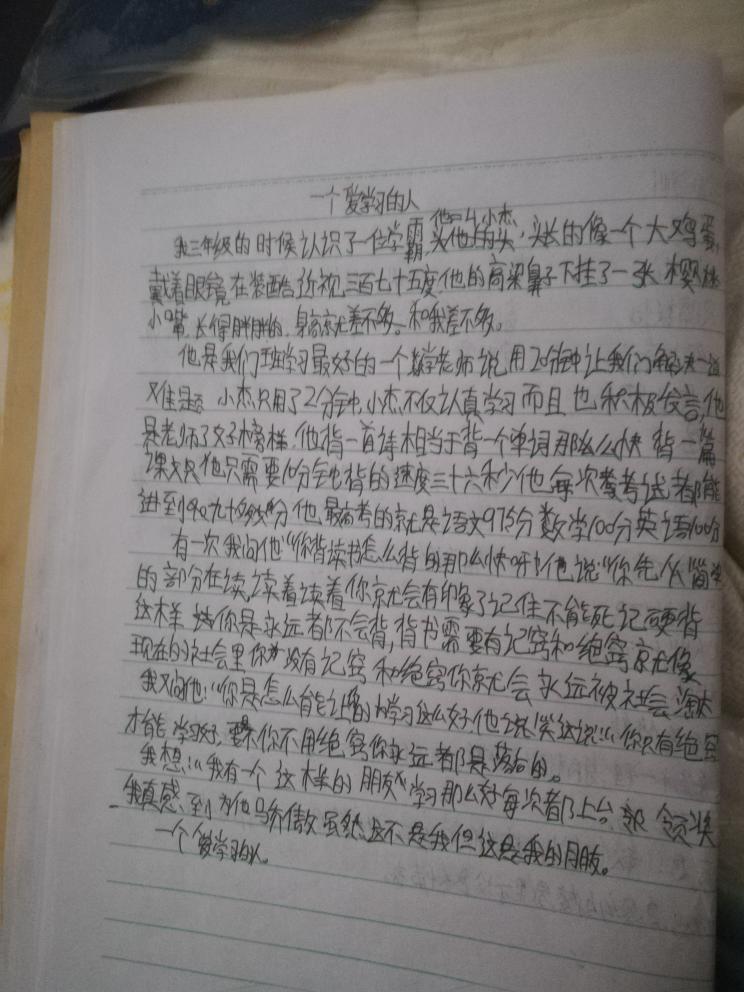 一个爱学习的人
我三年级的时候认识了一位学霸,他叫小杰,头长的像一个大鸡蛋,
戴着眼镜在装酷近视三百七十五度他的高梁鼻子下挂了一张樱桃
小嘴,长得胖胖的,身高就差不多、和我差不多。
他是我们班学习最好的一个数学老师说用20分钟让我们解决一道
难题 小杰只用了2分钟,小杰不仅认真学习而且也积极发言,他
是老师了文子榜样,他背一首诗相当于背一个单词那么快 背一篇
课文 他只需要10分钟背的速度三十六秒他每次考试都能
进到九十多分他最高考的就是语文97.5分数学100分英语100分
有一次我问他“你背读书怎么背的那么快呀!他说:“你先从简单
的部分在读,读着读着你就会有印象了记住不能死记硬背
这样 你是永远都不会背,背书需要有记窍和绝窍就像
现在的社会里你没有记窍和绝窍你就会永远被社会淘汰
我又问他:“你是怎么能让学习这么好,他说笑这说“你只有绝窍
才能学习好,要不你不用绝窍你永远都是落后的。
我想:“我有一个这样的朋友学习那么好每次都上台 领奖
我真感到为他骄傲虽然这不是我但这是我的朋友。
一个爱学习的人。